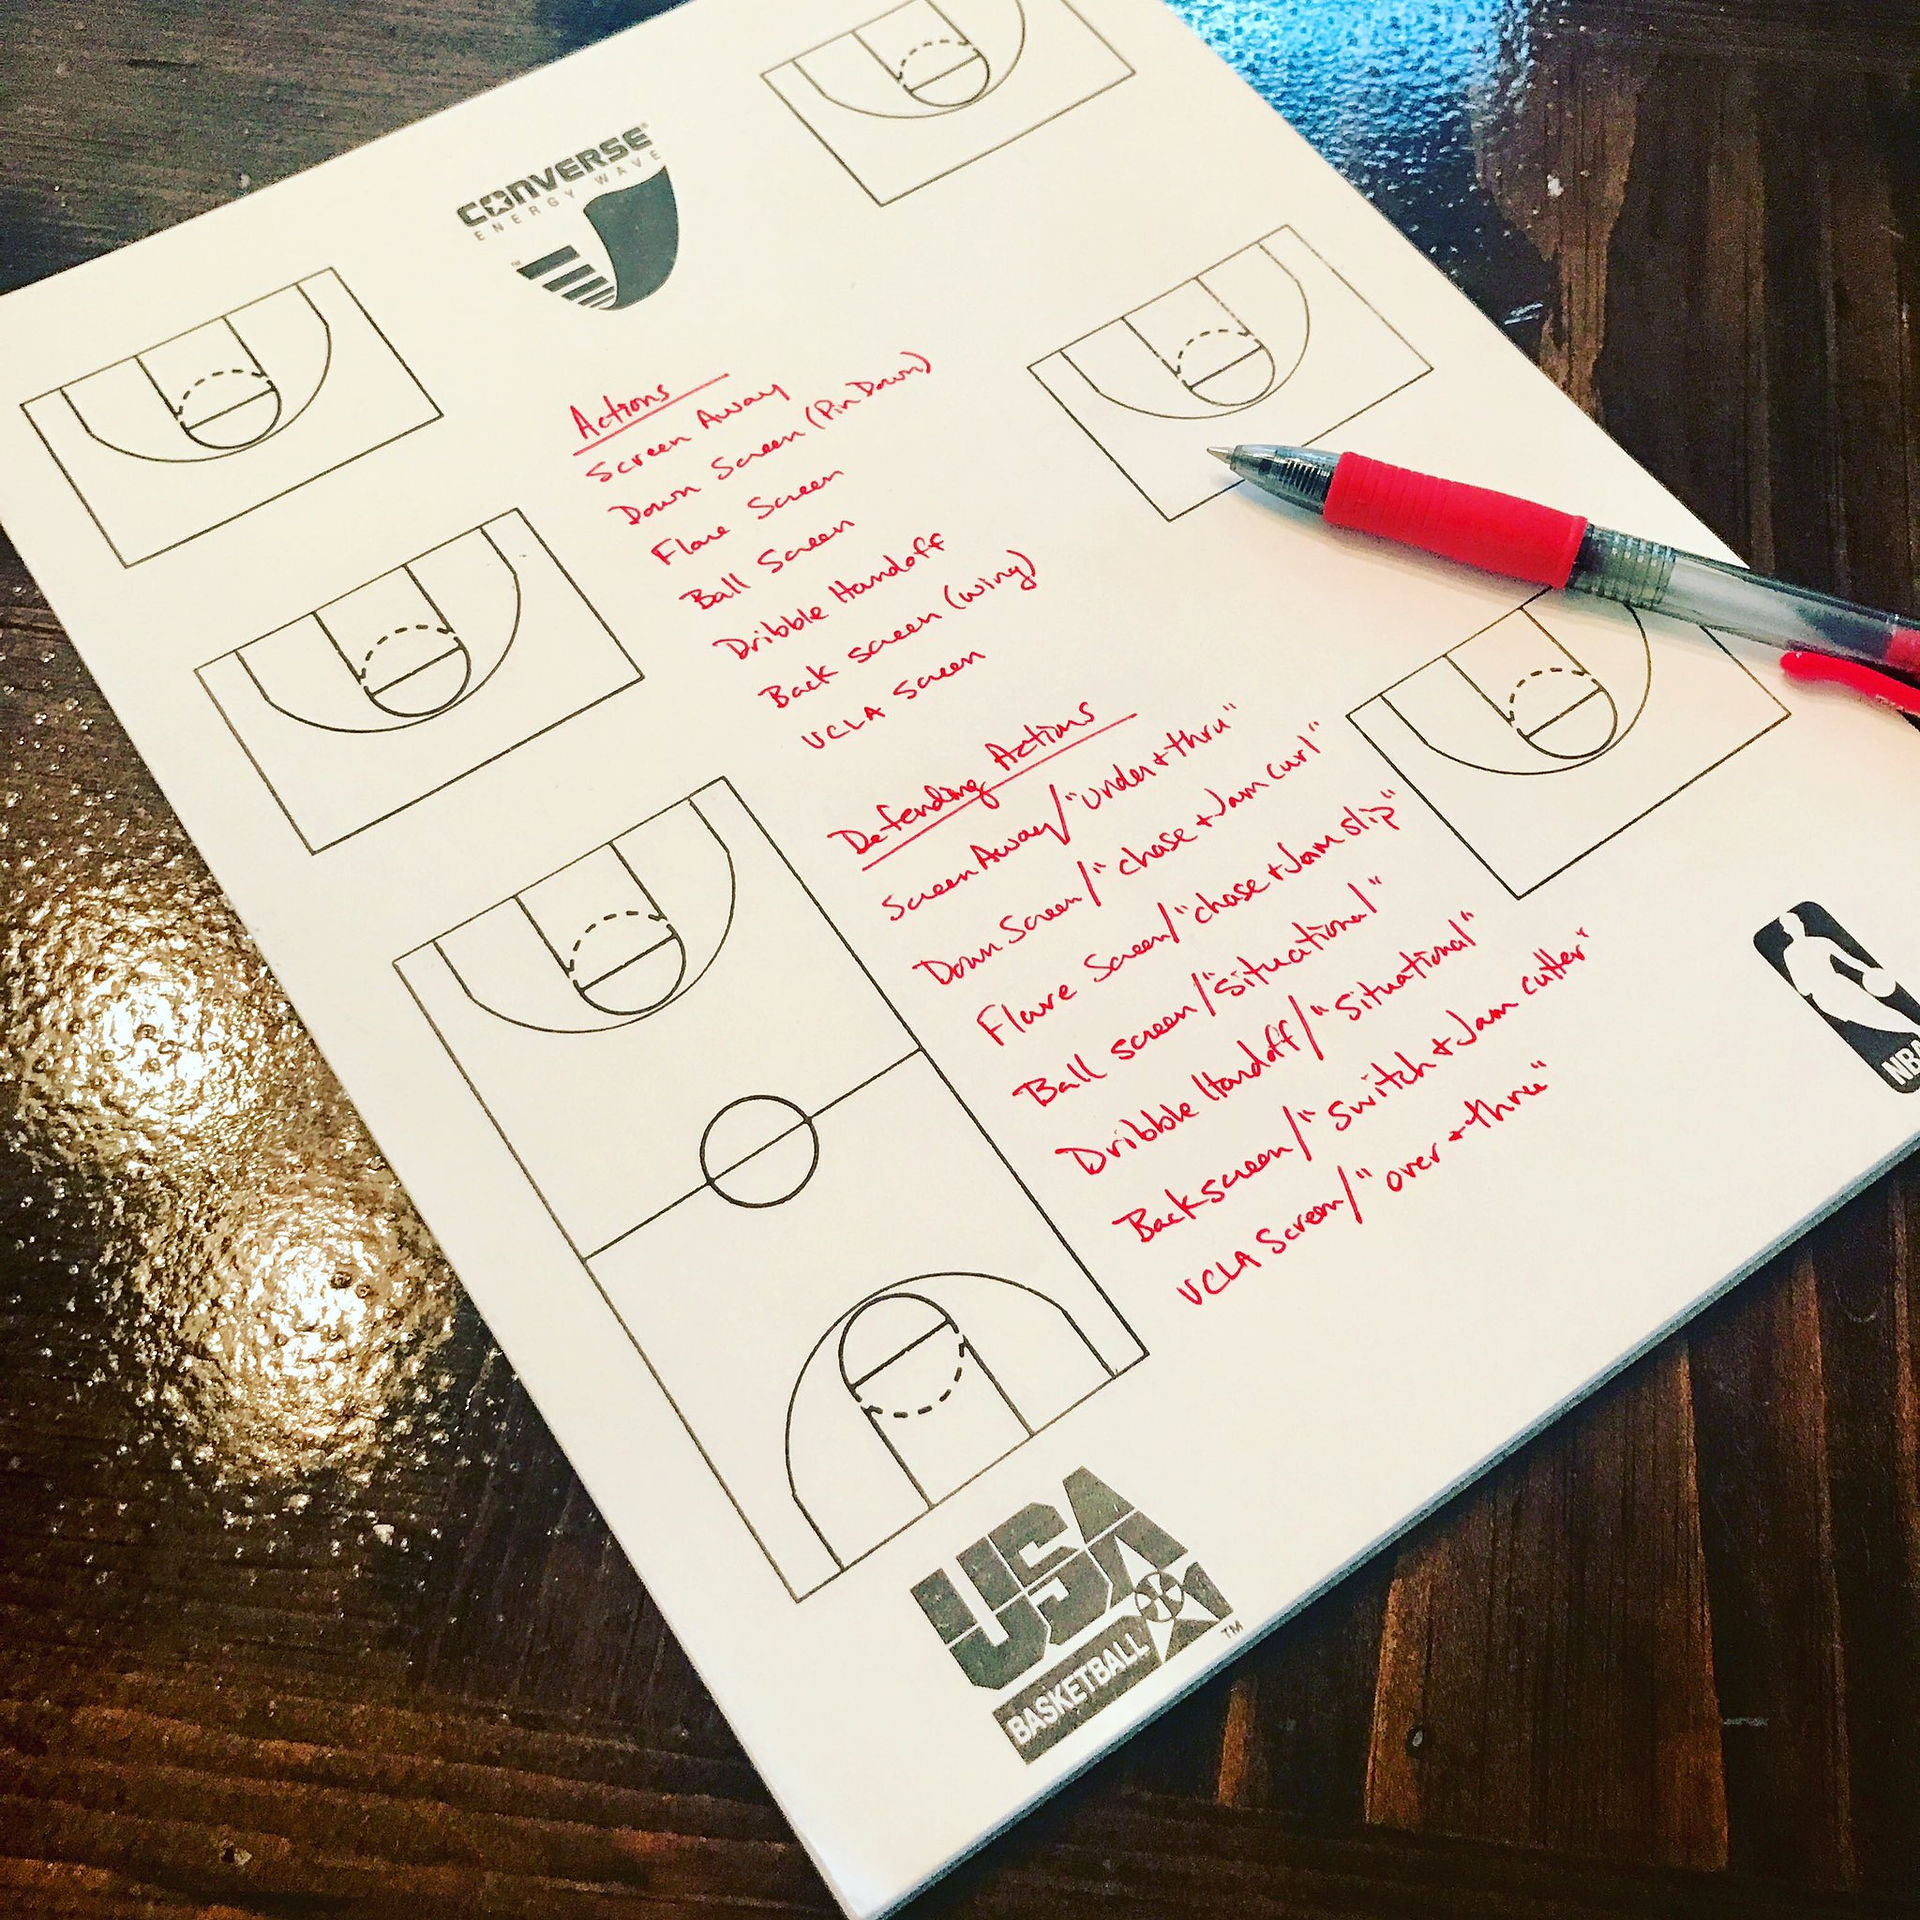 CONVERSE
ENERGY WAVE
Actions
Screen Away
Down Screen (Pin Down)
Flare Screen
Ball Screen
Dribble Handoff
Back screen (wing)
UCLA screen
Defending Actions
Screen Away/"under + thru"
Down Screen/"chase + Jam curl"
Flare Screen/"chase + Jam slip"
Ball screen/"situational"
Dribble Handoff/"situational"
Backscreen/"switch + Jam cutter"
UCLA Screen/"over + thru"
NBA
USA
BASKETBALL
TM